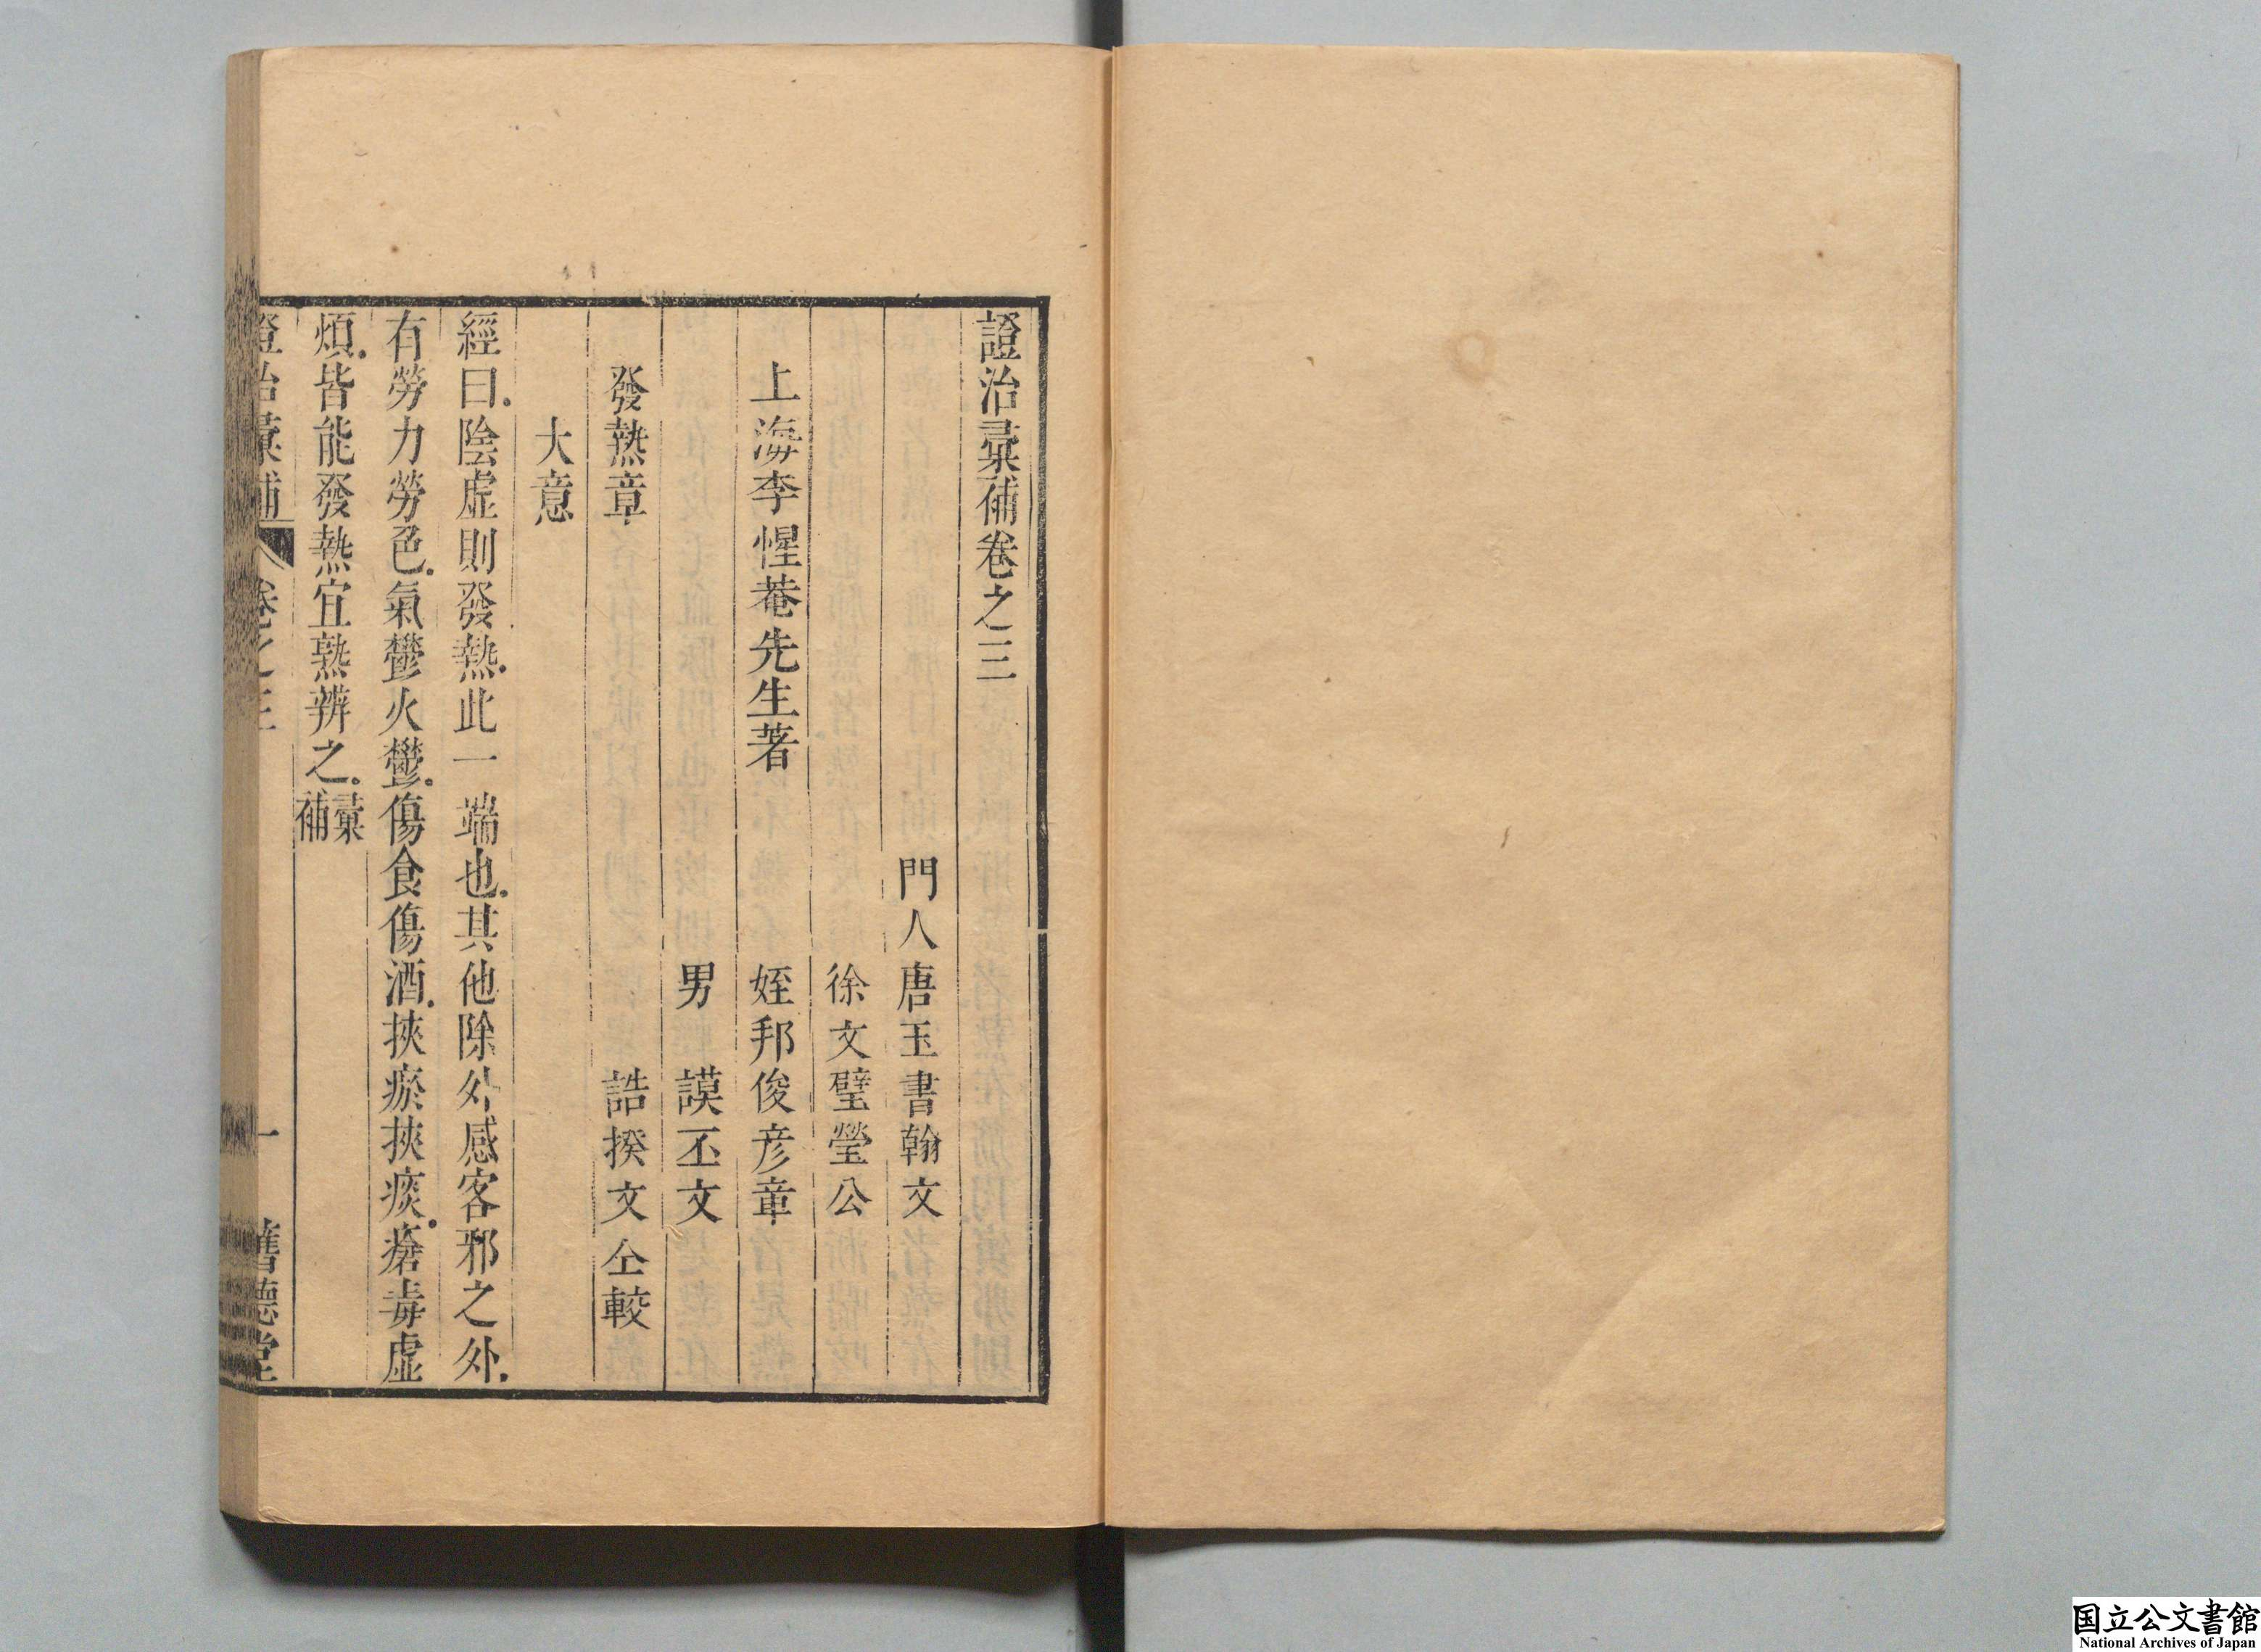 證治彙補卷之三
門人唐玉書翰文
徐文璧瑩公
上海李惺菴先生著　姪邦俊彥章
男　謨丕文
發熱章　誥揆文仝較
大意
經曰陰虛則發熱此一端也其他除外感客邪之外
有勞力勞色氣鬱火鬱傷食傷酒挾瘀挾痰瘡毒虛
煩皆能發熱宜熟辨之彙補
證治彙補　卷之三　一　舊德堂
国立公文書館
National Archives of Japan